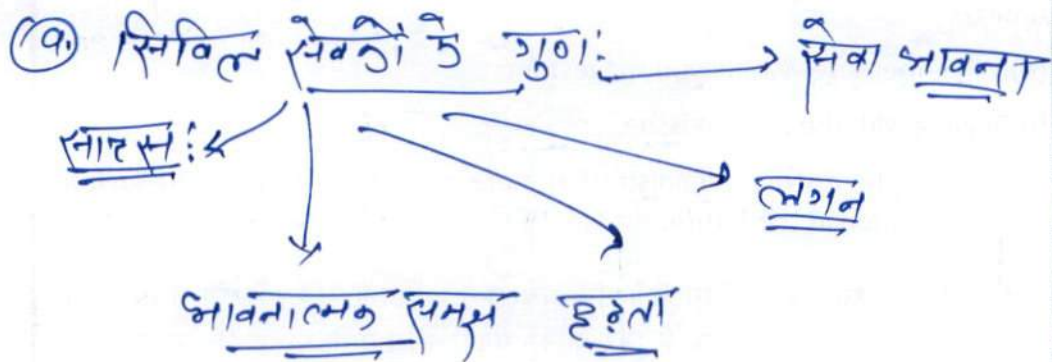 (a.) सिविल सेवकों के गुण: → सेवा भावना
साहस:
लगन
भावनात्मक समझ दृढ़ता